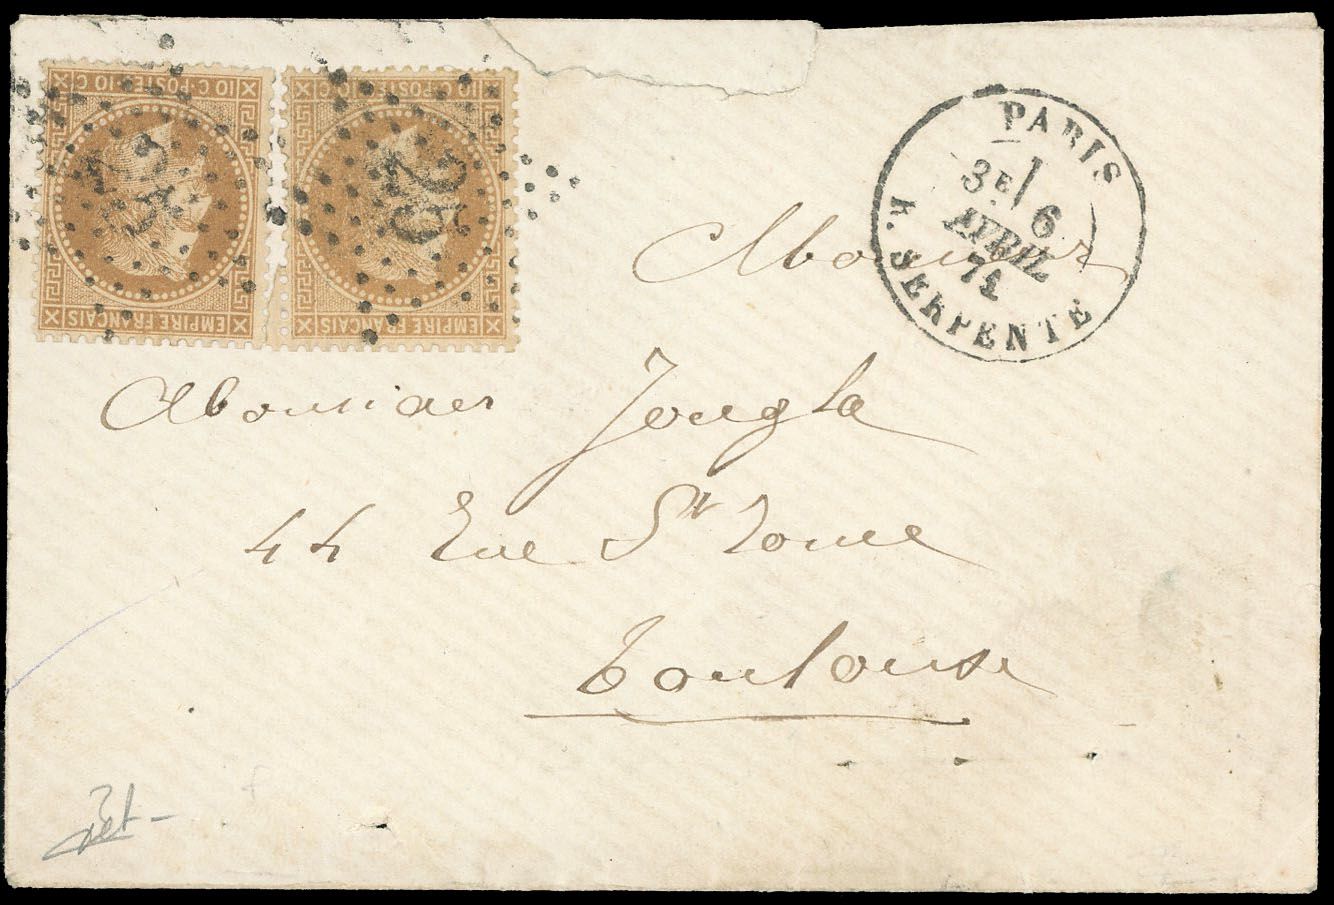 10 C·POSTE·10 C
EMPIRE FRANÇAIS
10 C·POSTE·10 C
EMPIRE FRANÇAIS
25
25
PARIS
3E/
6
AVRIL
71
R. SERPENTE
Monsieur
Monsieur Jougla
44 Rue St Rome
Toulouse